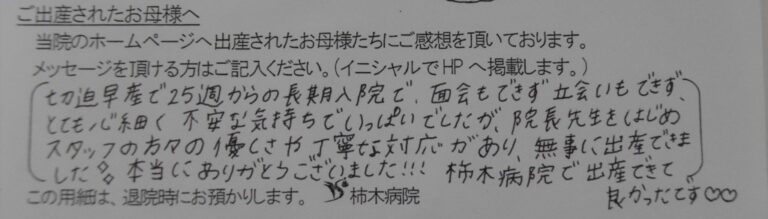 ご出産されたお母様へ
当院のホームページへ出産されたお母様たちにご感想を頂いております。
メッセージを頂ける方はご記入ください。(イニシャルでHPへ掲載します。)
切迫早産で25週からの長期入院で、面会もできず立会いもできず、
とても心細く 不安な気持ちでいっぱいでしたが、院長先生をはじめ
スタッフの方々の優しさや丁寧な対応があり、無事に出産できま
した。本当にありがとうございました!!! 柿木病院で出産できて
良かったです♡♡
この用紙は、退院時にお預かりします。 柿木病院